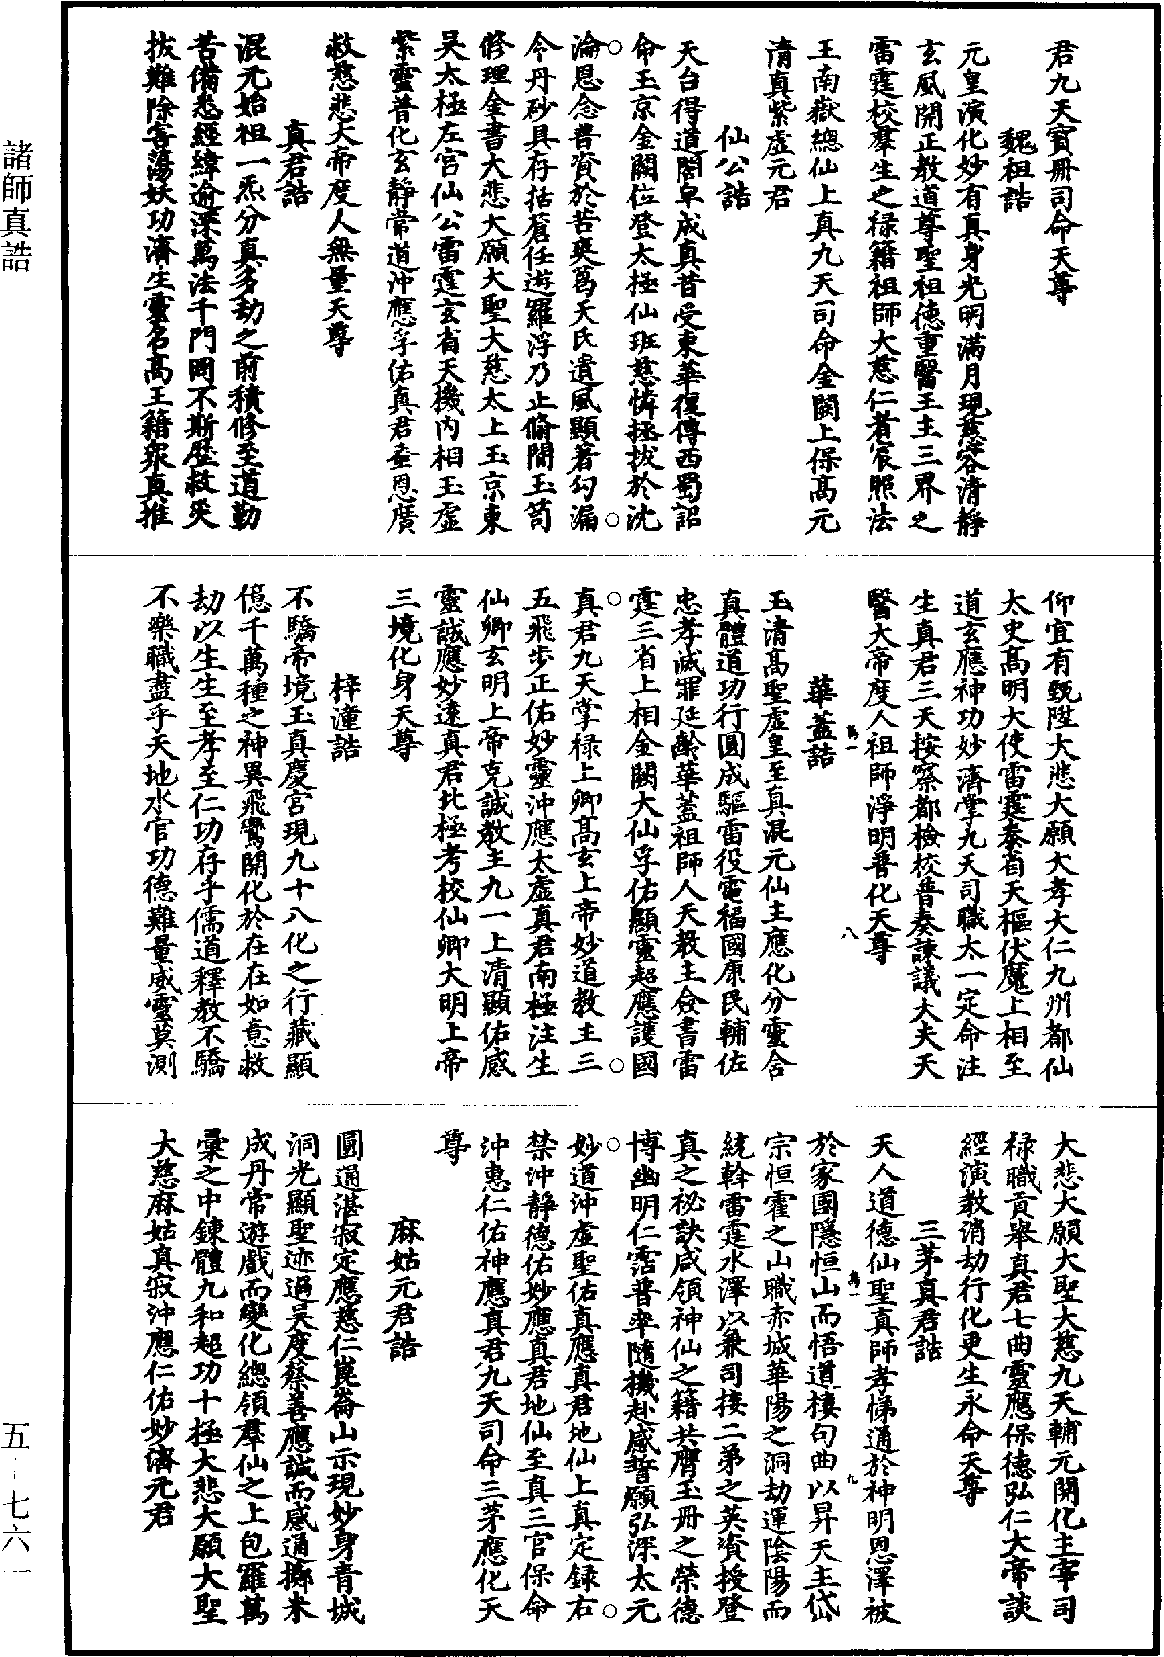 君九天寶冊司命天尊
魏祖誥
元皇演化妙有真身光明滿月現慈容清靜
玄風開正教道尊聖祖德重醫王主三界之
雷霆校羣生之祿籍祖師大慈仁者宸照法
王南嶽總仙上真九天司命金闕上保高元
清真紫虛元君
仙公誥
天台得道閤皁成真昔受東華復傳西蜀詔
命玉京金闕位登太極仙班慈憐拯拔於沈
淪恩念普資於苦爽葛天氏遺風顯著勾漏
令丹砂具存括蒼任遊羅浮乃止脩閒玉笥
修理金書大悲大願大聖大慈太上玉京東
吳太極左宮仙公雷霆玄省天機內相玉虛
紫靈普化玄靜常道沖應孚佑真君垂恩廣
救慈悲大帝度人無量天尊
真君誥
混元始祖一炁分真多劫之前積修至道勤
苦備悉經緯逾深萬法千門罔不斯歷救災
拔難除害蕩妖功濟生靈名高玉籍眾真推
仰宜有甄陞大悲大願大孝大仁九州都仙
太史高明大使雷霆泰省天樞伏魔上相至
道玄應神功妙濟掌九天司職太一定命注
生真君三天按察都檢校普奏諫議大夫天
醫大帝度人祖師淨明普化天尊
萬一 八
華蓋誥
玉清高聖虛皇至真混元仙主應化分靈含
真體道功行圓成驅雷役電福國康民輔佐
忠孝滅罪延齡華蓋祖師人天教主僉書雷
霆三省上相金闕大仙孚佑顯靈超應護國
真君九天掌祿上卿高玄上帝妙道教主三
五飛步正佑妙靈沖應太虛真君南極注生
仙卿玄明上帝克誠教主九一上清顯佑感
靈誠應妙遠真君北極考校仙卿大明上帝
三境化身天尊
梓潼誥
不驕帝境玉真慶宮現九十八化之行藏顯
億千萬種之神異飛鸞開化於在在如意救
劫以生生至孝至仁功存乎儒道釋教不驕
不樂職盡乎天地水官功德難量威靈莫測
大悲大願大聖大慈九天輔元開化主宰司
祿職貢舉真君七曲靈應保德弘仁大帝談
經演教消劫行化更生永命天尊
三茅真君誥
天人道德仙聖真師孝悌通於神明恩澤被
萬一 九
於家國隱恒山而悟道棲句曲以昇天主岱
宗恒霍之山職赤城華陽之洞劫運陰陽而
統幹雷霆水澤以兼司接二弟之英資授登
真之祕訣咸領神仙之籍共膺玉冊之榮德
博幽明仁霑普率隨機赴感誓願弘深太元
妙道沖虛聖佑真應真君地仙上真定錄右
禁沖靜德佑妙應真君地仙至真三官保命
沖惠仁佑神應真君九天司命三茅應化天
尊
麻姑元君誥
圓通湛寂定應慈仁崑崙山示現妙身青城
洞光顯聖迹過吳度蔡善應誠而感通擲米
成丹常遊戲而變化總領羣仙之上包羅萬
彙之中鍊體九和超功十極大悲大願大聖
大慈麻姑真寂沖應仁佑妙濟元君
諸師真誥
五—七六一